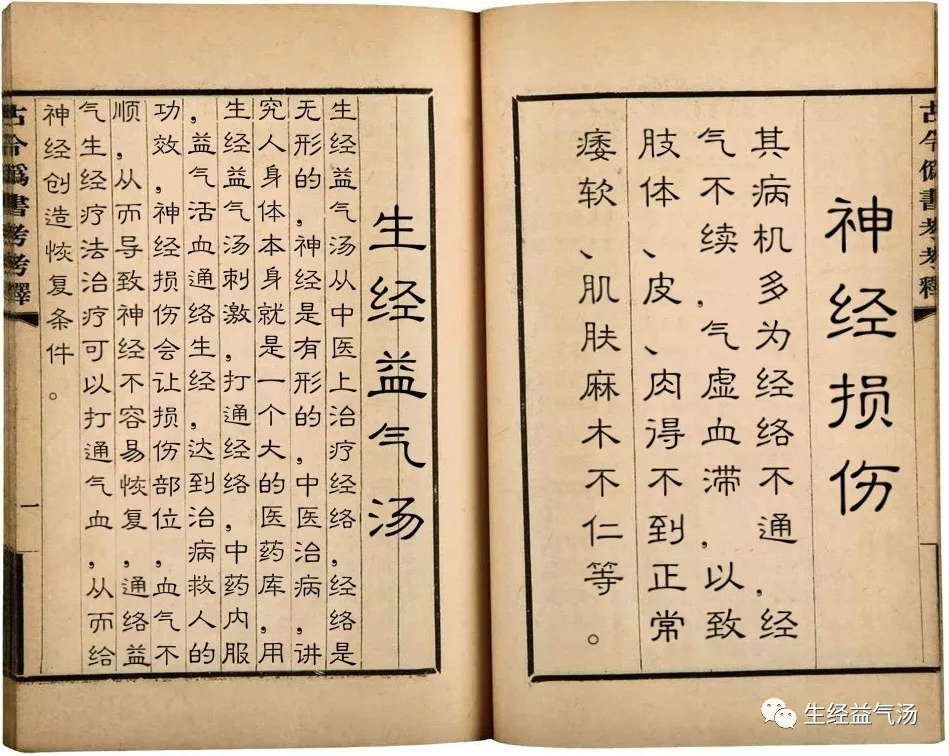 古今僞書考考釋
神经损伤
其病机多为经络不通，经
气不续，气虚血滞，以致
肢体、皮、肉得不到正常
痿软、肌肤麻木不仁等。
生经益气汤
生经益气汤从中医上治疗经络，经络是
无形的，神经是有形的，中医治病，讲
究人身体本身就是一个大的医药库，用
生经益气汤刺激，打通经络，中药内服
，益气活血通络生经，达到治病救人的
功效，神经损伤会让损伤部位，血气不
顺，从而导致神经不容易恢复，通络益
气生经疗法治疗可以打通气血，从而给
神经创造恢复条件。
古今僞書考考釋
一
生经益气汤